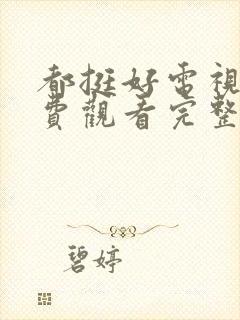 都挺好電視
費觀看完整
碧婷